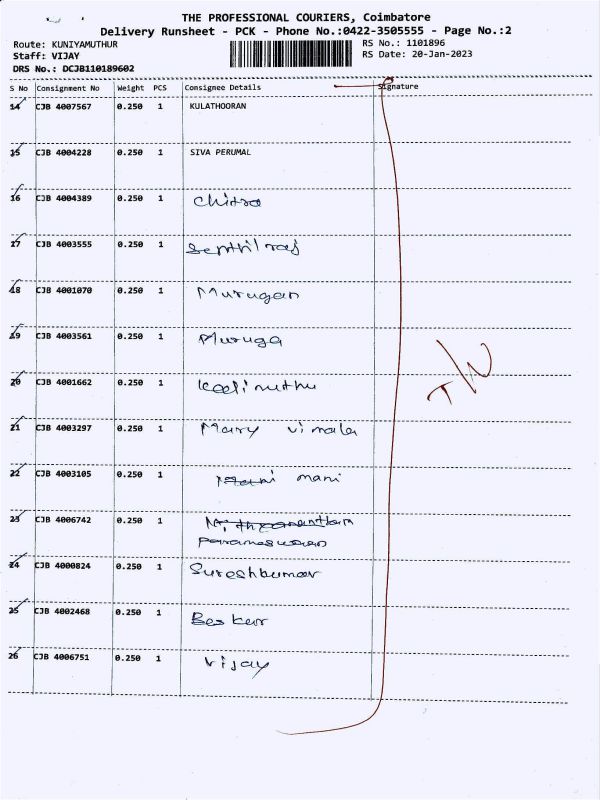 THE PROFESSIONAL COURIERS, Coimbatore
Delivery Runsheet - PCK - Phone No.:0422-3505555 - Page No.:2
Route: KUNIYAMUTHUR
RS No.: 1101896
Staff: VIJAY
RS Date: 20-Jan-2023
DRS No.: DCJB110189602
S No Consignment No Weight PCS Consignee Details Signature
14 CJB 4007567 0.250 1 KULATHOORAN
15 CJB 4004228 0.250 1 SIVA PERUMAL
16 CJB 4004389 0.250 1 Chitra
17 CJB 4003555 0.250 1 Senthil raj
18 CJB 4001070 0.250 1 Murugan
19 CJB 4003561 0.250 1 Muruga
20 CJB 4001662 0.250 1 Kalimuthu
21 CJB 4003297 0.250 1 Mary vimala
22 CJB 4003105 0.250 1 mani
23 CJB 4006742 0.250 1
Parameswaran
24 CJB 4000824 0.250 1 Sureshkumar
25 CJB 4002468 0.250 1 Baskar
26 CJB 4006751 0.250 1 Vijay